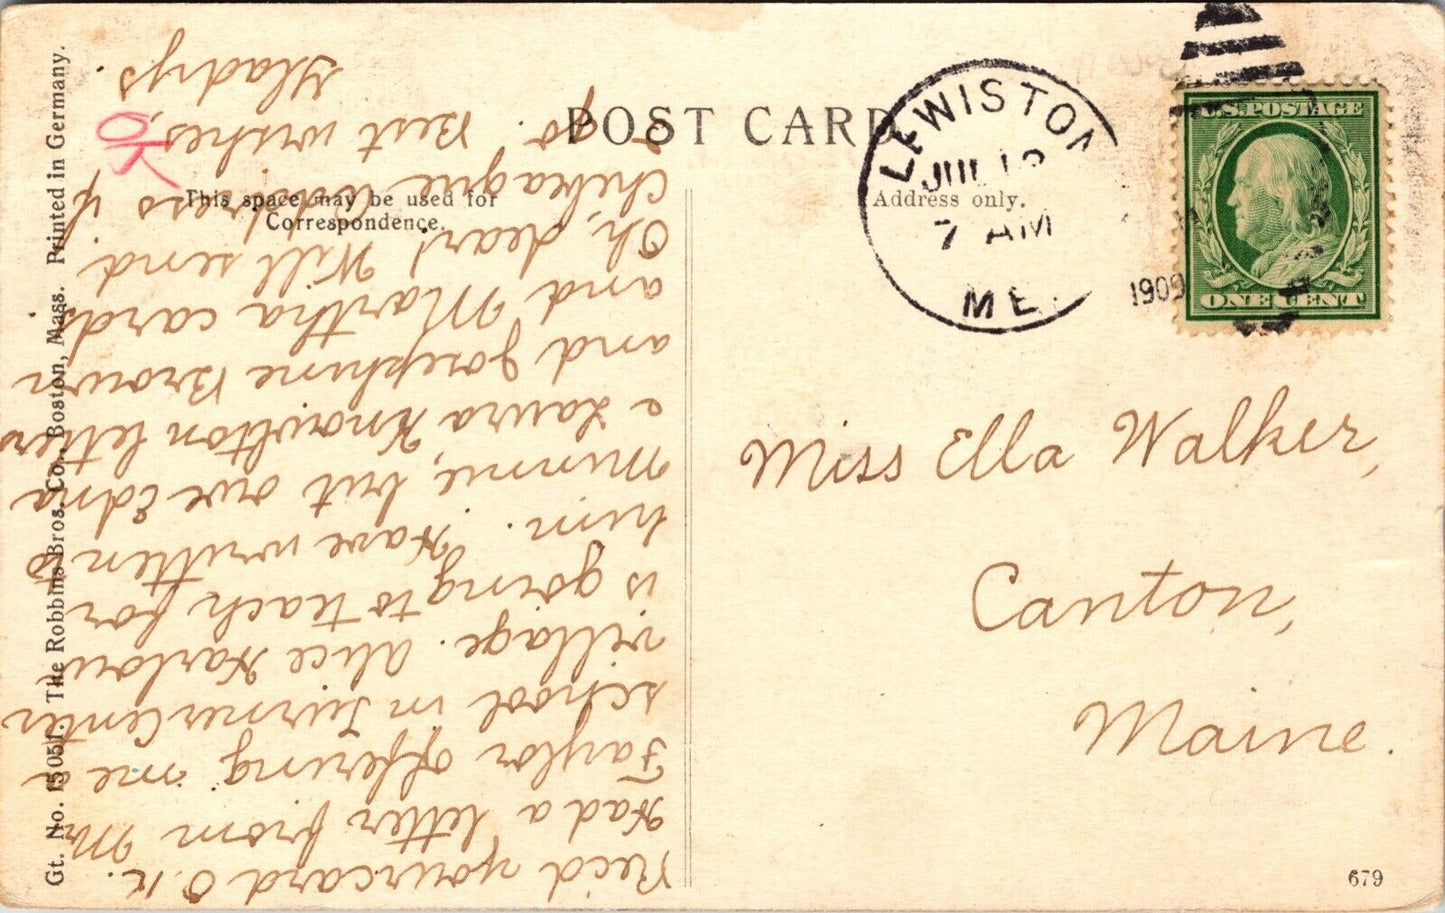 POST CARD
This space may be used for
Correspondence.
Address only.
LEWISTON
JUL
7 AM
ME.
1909
U.S. POSTAGE
ONE CENT
Miss Ella Walker,
Canton,
Maine.
679
Gt. No. 15051. The Robbins Bros. Co., Boston, Mass. Printed in Germany.
OK
Rec'd your card O.K.
Had a letter from Mr
Taylor offering me a
school in Turner Center
village. Alice Harlow
is going to teach for
him. Have written
Minnie, but owe Edna
e Laura Knowlton letters
and Josephine Brown
and Martha cards.
Oh, dear! Will send
address if
I go. Best wishes,
Gladys.